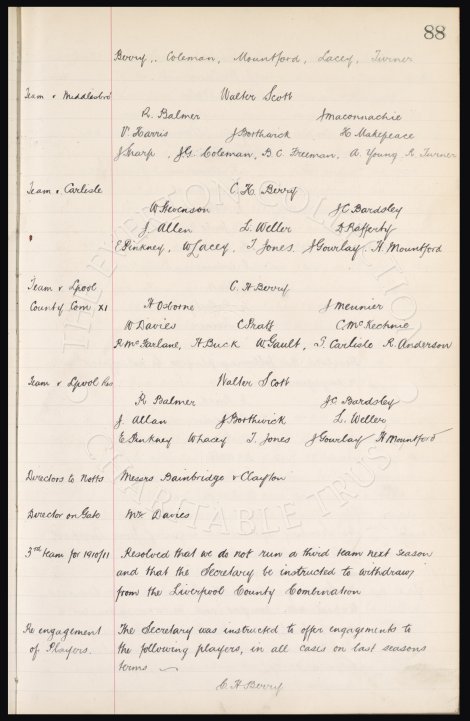 88
Berry, Coleman, Mountford, Lacey, Turner
Team v Middlesbro' Walter Scott
R. Balmer J Maconnachie
V. Harris J Borthwick H Makepeace
J Sharp, J.G. Coleman, B.C. Freeman, A. Young R Turner
Team v Carlisle C. H. Berry
W Stevenson J C Bardsley
J Allen L. Weller D Rafferty
E Pinkney, W Lacey, T Jones, J Gourlay, H. Mountford
Team v Lpool C. H Berry
County Com XI H Osborne J Meunier
W Davies C Pratt C. McKechnie
R. McFarlane, H Buck W Gault, T. Carlisle R. Anderson
Team v Lpool Res Walter Scott
R Balmer J C Bardsley
J. Allan J Borthwick L. Weller
E Pinkney W Lacey T. Jones J Gourlay H. Mountford
Directors to Notts Messrs Bainbridge & Clayton
Director on Gate Mr Davies
3rd team for 1910/11 Resolved that we do not run a third team next season
and that the Secretary be instructed to withdraw
from the Liverpool County Combination
Re engagement The Secretary was instructed to offer engagements to
of Players. the following players, in all cases on last seasons
terms
C H Berry
EVERTON COLLECTION
CHARITABLE TRUST